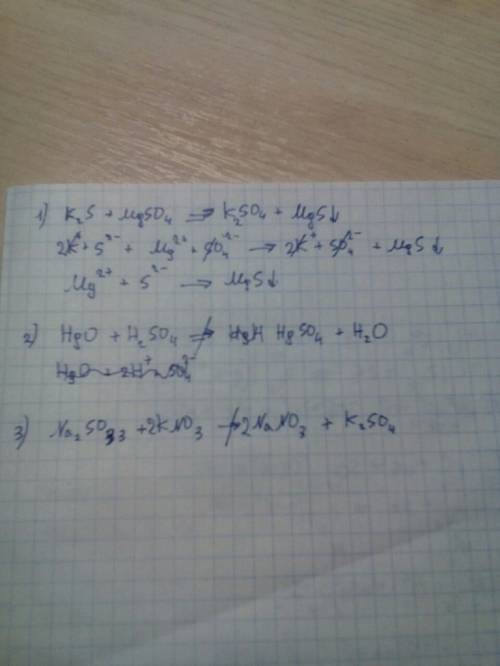 1) K₂S + MgSO₄ ⇒ K₂SO₄ + MgS↓
2K⁺ + S²⁻ + Mg²⁺ + SO₄²⁻ → 2K⁺ + SO₄²⁻ + MgS↓
Mg²⁺ + S²⁻ → MgS↓
2) HgO + H₂SO₄ ⇏ HgSO₄ + H₂O
HgO + 2H⁺ + SO₄²⁻
3) Na₂SO₃ + 2KNO₃ ↛ 2NaNO₃ + K₂SO₄